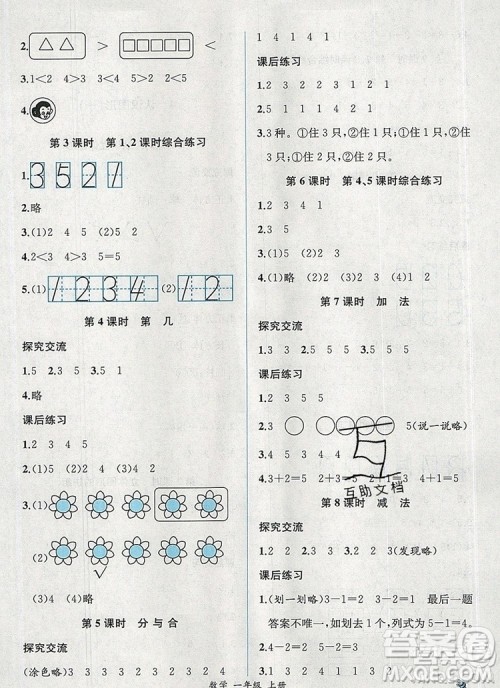 2. > <
3.1＜2 4＞3 3＞2 5＞1 2＜4
4.
第3课时 第1、2课时综合练习
1.3 5 2 1
2.略
3.(1)2 4 5 (2)5 2
4.1＜2 2＜4 3＞2 5＝5
5.(1)1 2 3 4 (2)1 2
第4课时 第 几
探究交流
1.5 2.3 5 3.5 1
4.略
课后练习
1.2 3 4 5
2.略
3.(1)
(2)
(3)4 (4)略
第5课时 分与合
探究交流
(涂色略)1 3 3 3 3 3 3
1 4 1 4 1
课后练习
1.2 1 2 3 2 3 1
2.1 2 1 1
3.3种。①住3只，②住2只；①住1只，②住
3只；①住2只，②住2只。
第6课时 第4、5课时综合练习
1.2 1 2 4
2.2 3 4 1
3.(1)略 (2)4 (3)2 1
第7课时 加 法
探究交流
1.3 3 2.3 5 3.4 4
课后练习
1.3 3 4 4
2.3 5(说一说略)
3.4 3＋2＝5 2＋3＝5 4＋1＝5
互助文档
第8课时 减 法
探究交流
1.2 2 2.3 4 3.2 3(发现略)
课后练习
1.(划一划略)3－1＝2 最后一题
答案不唯一，有几个划几个，列式为5－5＝0。
2.4－2＝2 5－1＝4
数学 一年级 上册